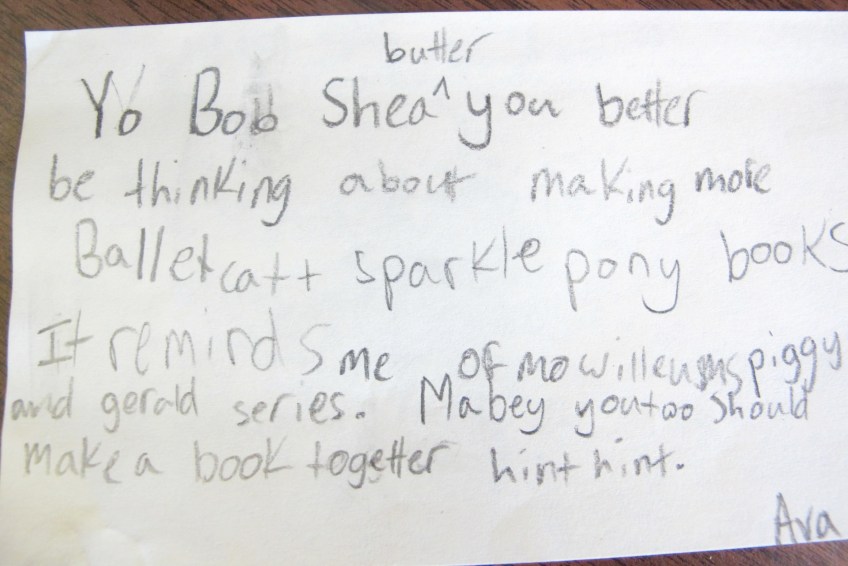 butter
Yo Bob Shea^ you better
be thinking about making more
Ballet catt sparkle pony books
It reminds me of mo willeums piggy
and gerald series. Mabey you too should
make a book togetter hint hint.
Ava